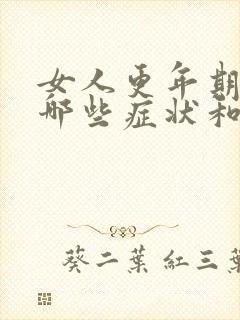 女人更年期
哪些症状和
葵二葉 紅三葉